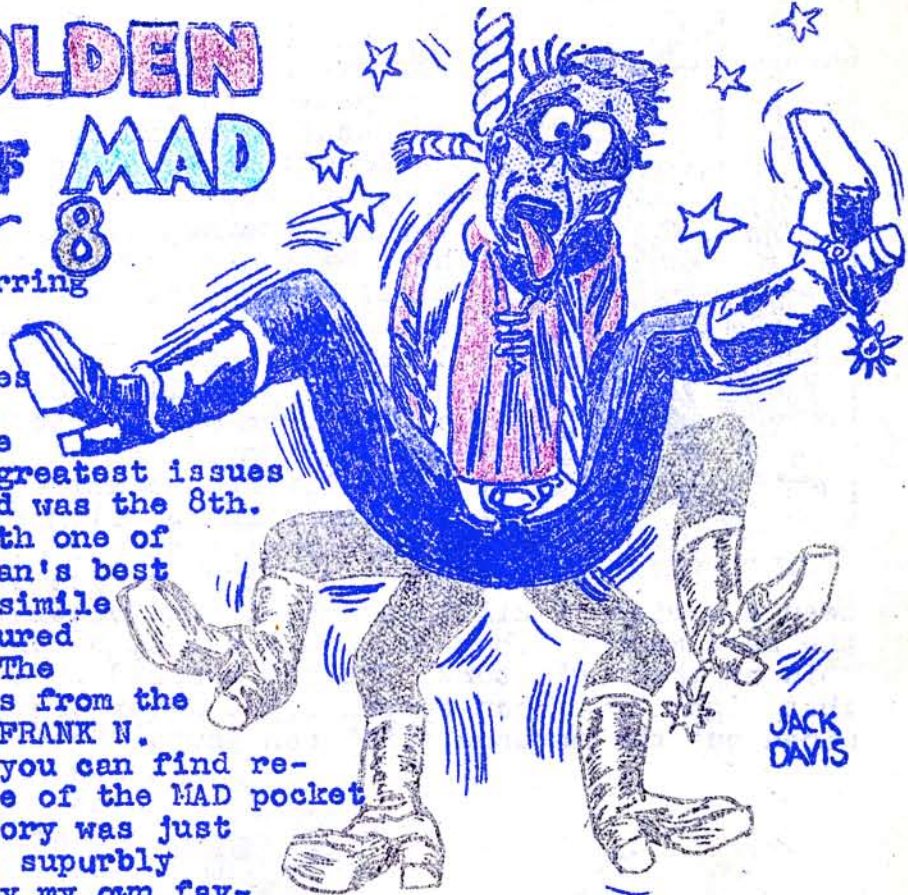 OLDEN
F MAD
8
rring
es
e
greatest issues
d was the 8th.
th one of
an's best
simile
ured
The
s from the
FRANK N.
you can find re-
e of the MAD pocket
ory was just
supurbly
y my own fav-
JACK
DAVIS